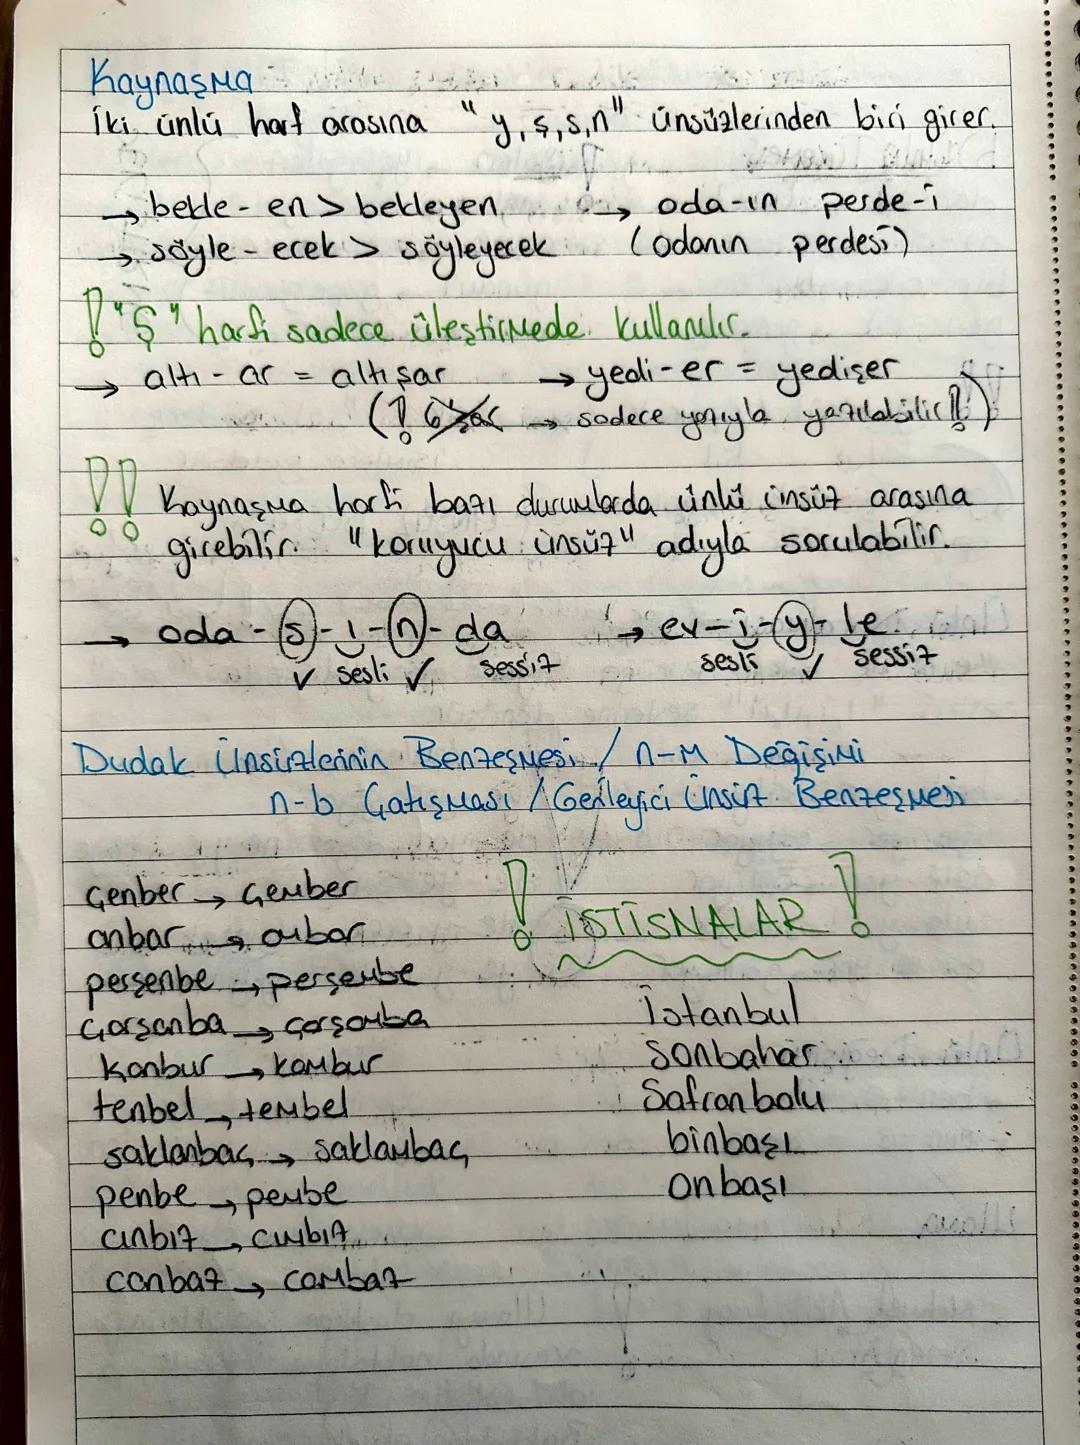 Kaynaşma
İki ünlü harf arasına "y,ş,s,n" ünsüzlerinden biri girer.
→ bekle - en > bekleyen → oda-ın perde-i
→ söyle - ecek > söyleyecek (odanın perdesi)
! "Ş" harfi sadece üleştirmede kullanılır.
→ altı - ar = altışar → yedi-er = yedişer
(! 6'şar → sadece yazıyla yazılabilir!!)
!! Kaynaşma harfi bazı durumlarda ünlü ünsüz arasına
girebilir. "koruyucu ünsüz" adıyla sorulabilir.
→ oda - s - ı - n - da → ev - i - y - le
✓ sesli ✓ sessiz sesli ✓ sessiz
Dudak Ünsüzlerinin Benzeşmesi / n-m Değişimi
n-b Çatışması / Gerileyici Ünsüz Benzeşmesi
çenber → çember
anbar → ambar
! İSTİSNALAR !
perşenbe → perşembe
çarşanba → çarşamba
kanbur → kambur
tenbel → tembel
saklanbaç → saklambaç
penbe → pembe
cınbız → cımbız
canbaz → cambaz
İstanbul
Sonbahar
Safranbolu
binbaşı
onbaşı